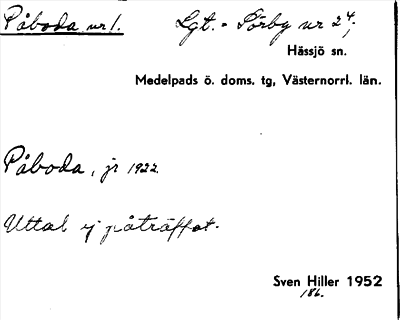 Påboda nr 1. Lgt. = Sörby nr 2⁴;
Hässjö sn.
Medelpads ö. doms. tg, Västernorrl. län.
Påboda, jr 1922.
Uttal ej påträffat.
Sven Hiller 1952
186.